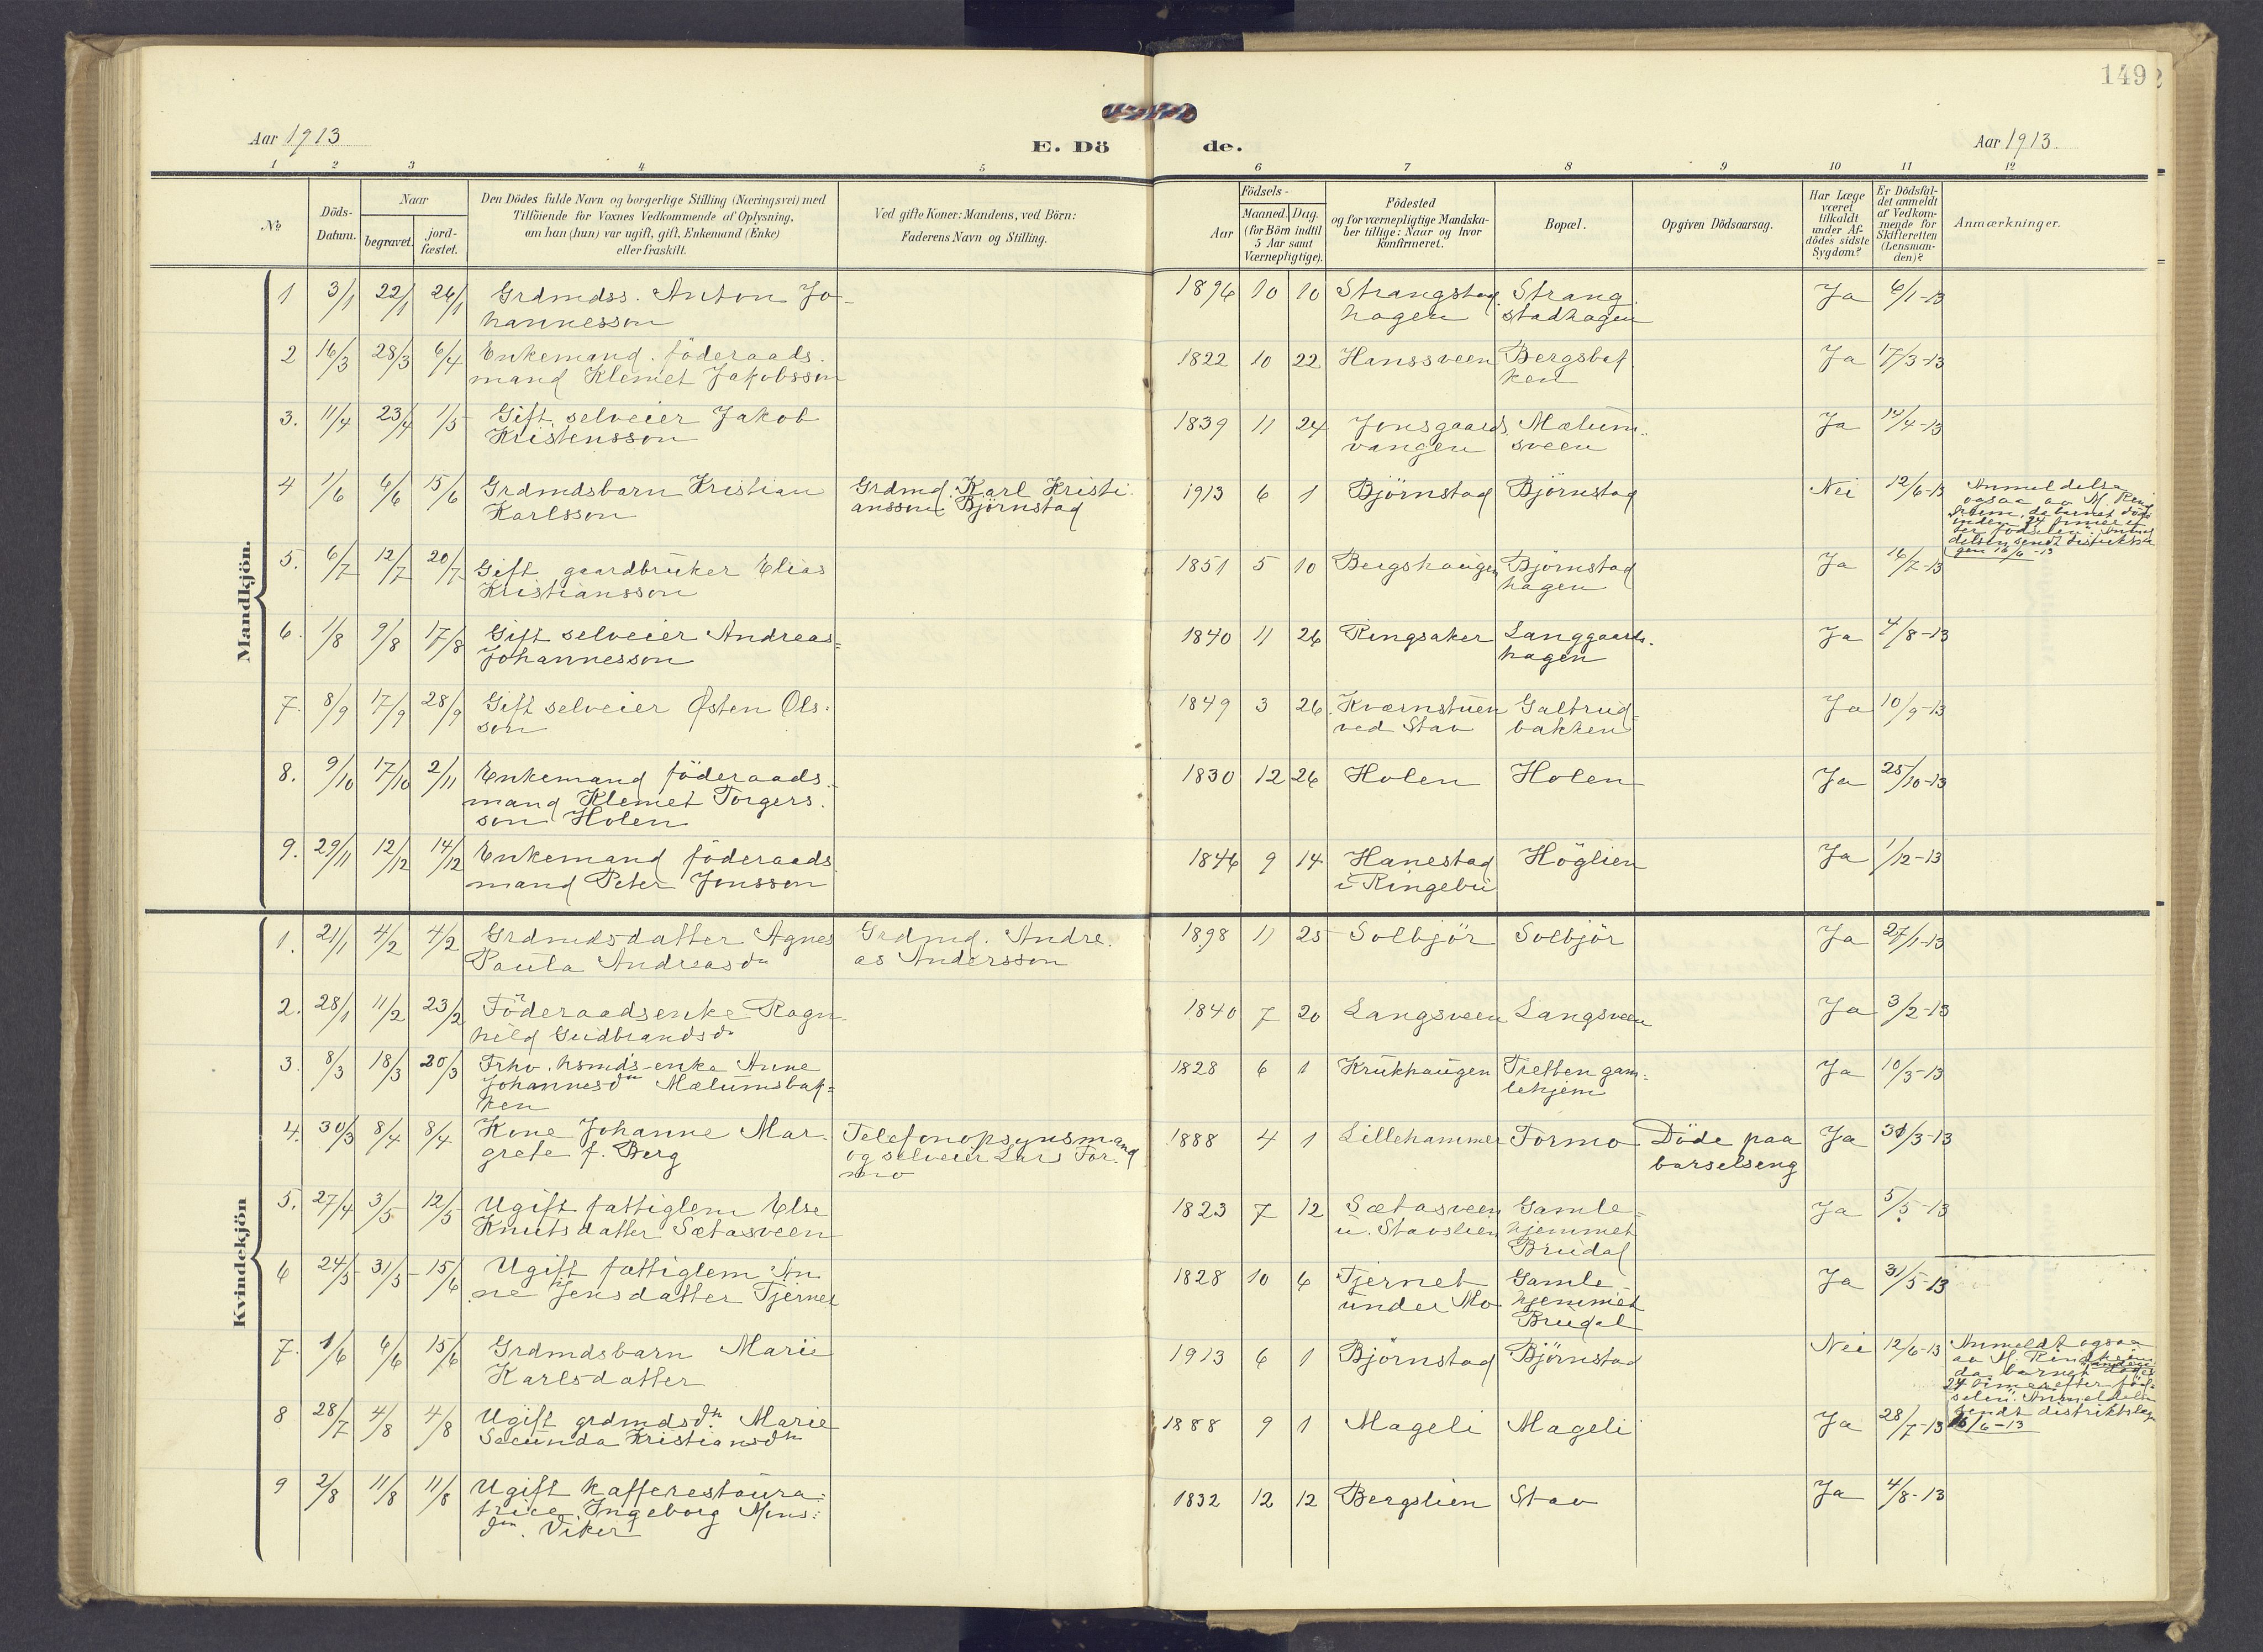 149
Aar 1913
E. Dö de.
Aar 1913.
1 2 3 4 5 6 7 8 9 10 11 12
No
Döds-Datum.
Naar
begravet.
jord-fæstet.
Den Dödes fulde Navn og borgerlige Stilling (Næringsvei) med
Tilföiende for Voxnes Vedkommende af Oplysning,
om han (hun) var ugift, gift, Enkemand (Enke)
eller fraskilt.
Ved gifte Koner: Mandens, ved Börn:
Faderens Navn og Stilling.
Födsels-
Aar
Maaned. Dag.
(for Börn indtil
5 Aar samt
Værnepligtige).
Födested
og for værnepligtige Mandska-
ber tillige: Naar og hvor
Konfirmeret.
Bopæl.
Opgiven Dödsaarsag.
Har Læge
været
tilkaldt
under Af-
dödes sidste
Sygdom?
Er Dödsfal-
det anmeldt
af Vedkom-
mende for
Skifteretten
(Lensman-
den)?
Anmærkninger.
Mandkjön.
1 3/1 22/1 26/1 Grdmdss. Anton Jo- 1896 10 10 Strangstad. Strang. Ja 6/1-13
hannesson hagen stadhagen
2 16/3 28/3 6/4 Enkemand. föderaads. 1822 10 22 Hanssveen Bergsbak Ja 17/3-13
mand Klemet Jakobsson ken
3. 11/4 23/4 1/5 Gift. selveier Jakob 1839 11 24 Jonsgaards. Mælum. Ja 14/4-13
Kristensson vangen sveen
4 1/6 6/6 15/6 Grdmdsbarn Kristian Grdmd. Karl Kristi. 1913 6 1 Björnstad Björnstad Nei 12/6-13 Anmeldelse
Karlsson ansson Björnstad ogsaa av M.
da barnet döde
inden 24 timer ef
ter födselen. Anmel
delsen sendt distriktslæ
gen 16/6-13
5. 6/7 12/7 20/7 Gift gaardbruker Elias 1851 5 10 Bergshaugen Björnstad Ja 16/7-13
Kristiansson hagen
6. 1/8 9/8 17/8 Gift selveier Andreas= 1840 11 26 Ringsaker Langgaards. Ja 4/8-13
Johannesson hagen
7. 8/9 17/9 28/9 Gift selveier Østen Ols. 1849 3 26 Kværnstuen Galtrud= Ja 10/9-13
son ved Stav bakken
8. 9/10 17/10 2/11 Enkemand föderaads. 1830 12 26 Holen Holen Ja 25/10-13
mand Klemet Torgers.
son Holen
9. 29/11 12/12 14/12 Enkemand föderaads 1846 9 14 Hanestad Höglien Ja 1/12-13
mand Peter Jonsson i Ringebu
Kvindekjön
1. 21/1 4/2 4/2 Grdmdsdatter Agnes Grdmd. Andre. 1898 11 25 Solbjör Solbjör Ja 27/1-13
Paula Andreasdtr as Andersson
2. 28/1 11/2 23/2 Föderaadsenke Ragn- 1840 7 20 Langsveen Langsveen Ja 3/2-13
hild Gudbrandsdr
3. 8/3 18/3 20/3 Frhv. hsmds-enke Anne 1828 6 1 Krukhaugen Tretten gam= Ja 10/3-13
Johannesdtr Mælumsbak= lehjem
ken
4. 30/3 8/4 8/4 Kone Johanne Mar. Telefonopsynsmand 1888 4 1 Lillehammer Formo Döde paa Ja 31/3-13
grete f. Berg og selveier Lars For. barselseng
mo
5. 27/4 3/5 12/5 Ugift fattiglem Else 1823 7 12 Sætasveen Gamle= Ja 5/5-13
Knutsdatter Sætasveen u. Stavslien hjemmet
Brudal
6 24/5 31/5 15/6 Ugift fattiglem An 1828 10 6 Tjernet Gamle Ja 31/5-13
ne Jensdatter Tjernet under Mo hjemmet
Brudal
7. 1/6 6/6 15/6 Grdmdsbarn Marie 1913 6 1 Björnstad Björnstad Nei 12/6-13 Anmeldt ogsaa
Karlsdatter av M.
da barnet döde
24 timer efter föd-
selen. Anmeldelsen
sendt distriktslægen
16/6-13
8 28/7 4/8 4/8 Ugift grdmdsdtr. Marie 1888 9 1 Mageli Mageli Ja 28/7-13
Secunda Kristiansdtr
9 2/8 11/8 11/8 Ugift kafferestaura= 1832 12 12 Bergslien Stav Ja 4/8-13
trice Ingeborg Mons=
dtr. Viker